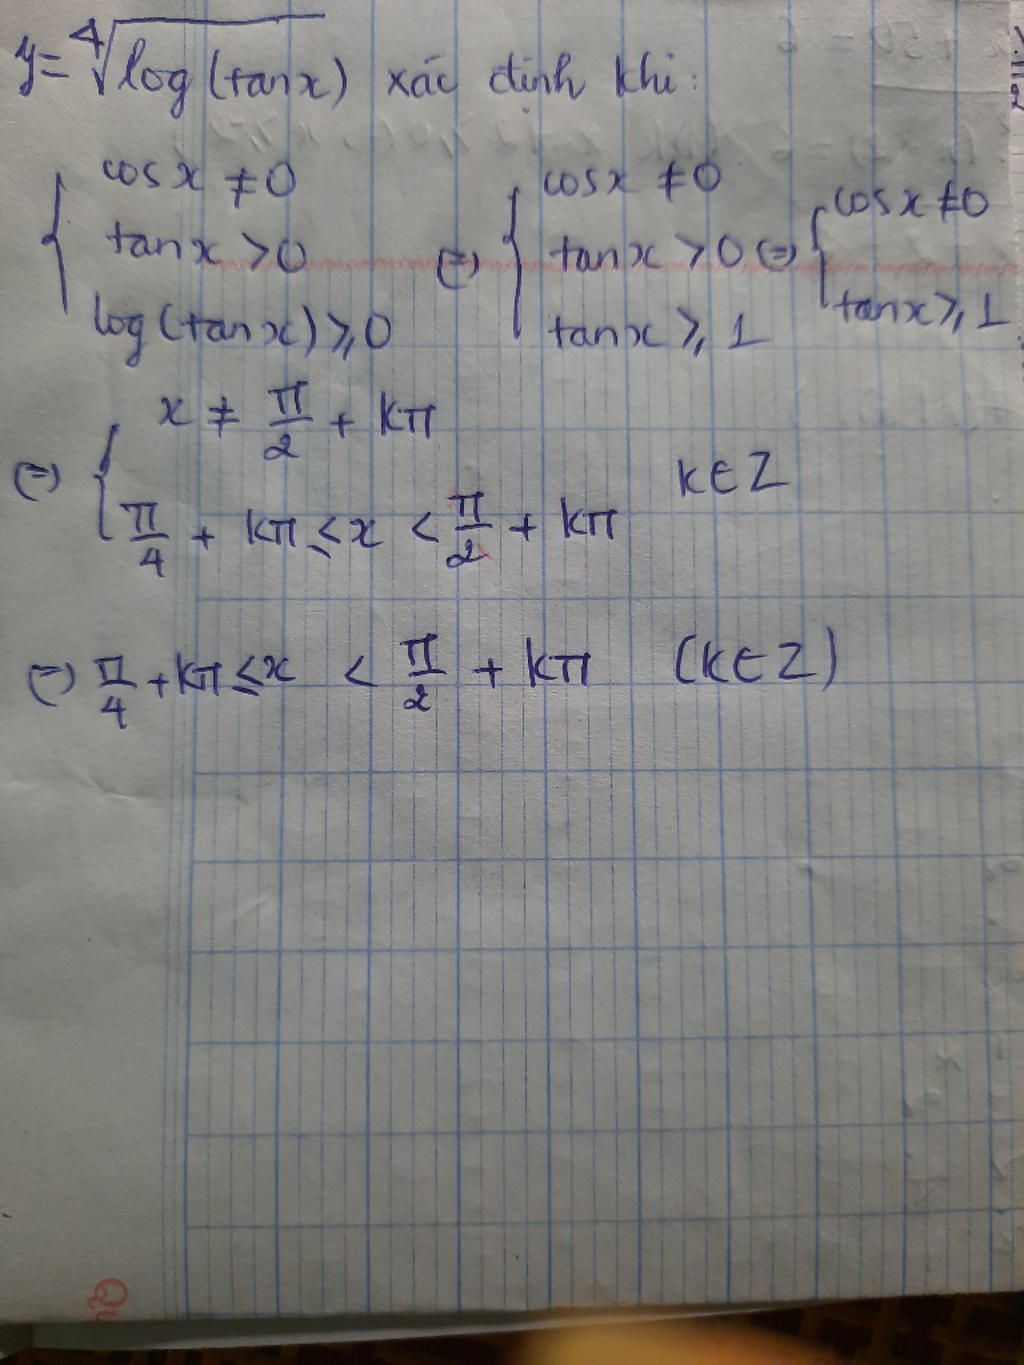 y = ⁴√log(tanx) xác định khi:
{ cosx ≠ 0
tanx > 0
log(tanx) ⩾ 0
(=) { cosx ≠ 0
tanx > 0
tanx ⩾ 1
(=) { cosx ≠ 0
tanx ⩾ 1
(=) { x ≠ π/2 + kπ
π/4 + kπ ≤ x < π/2 + kπ k∈Z
(=) π/4 + kπ ≤ x < π/2 + kπ (k∈Z)